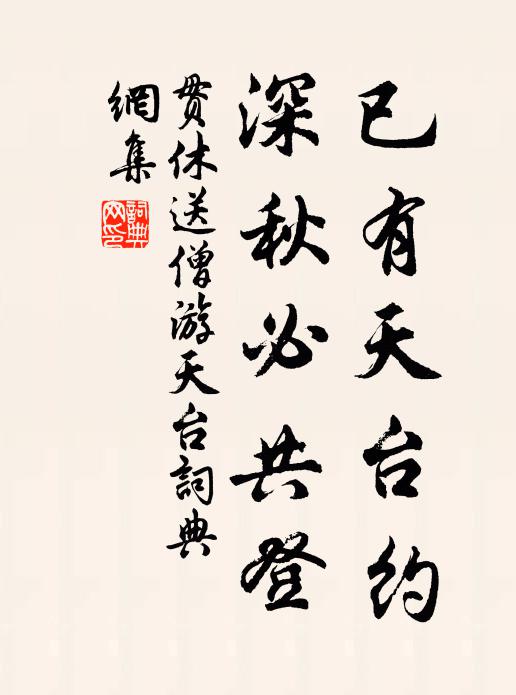 已有天台约
深秋必共登
贯休送僧游天台詞典
網集
詞典
网印